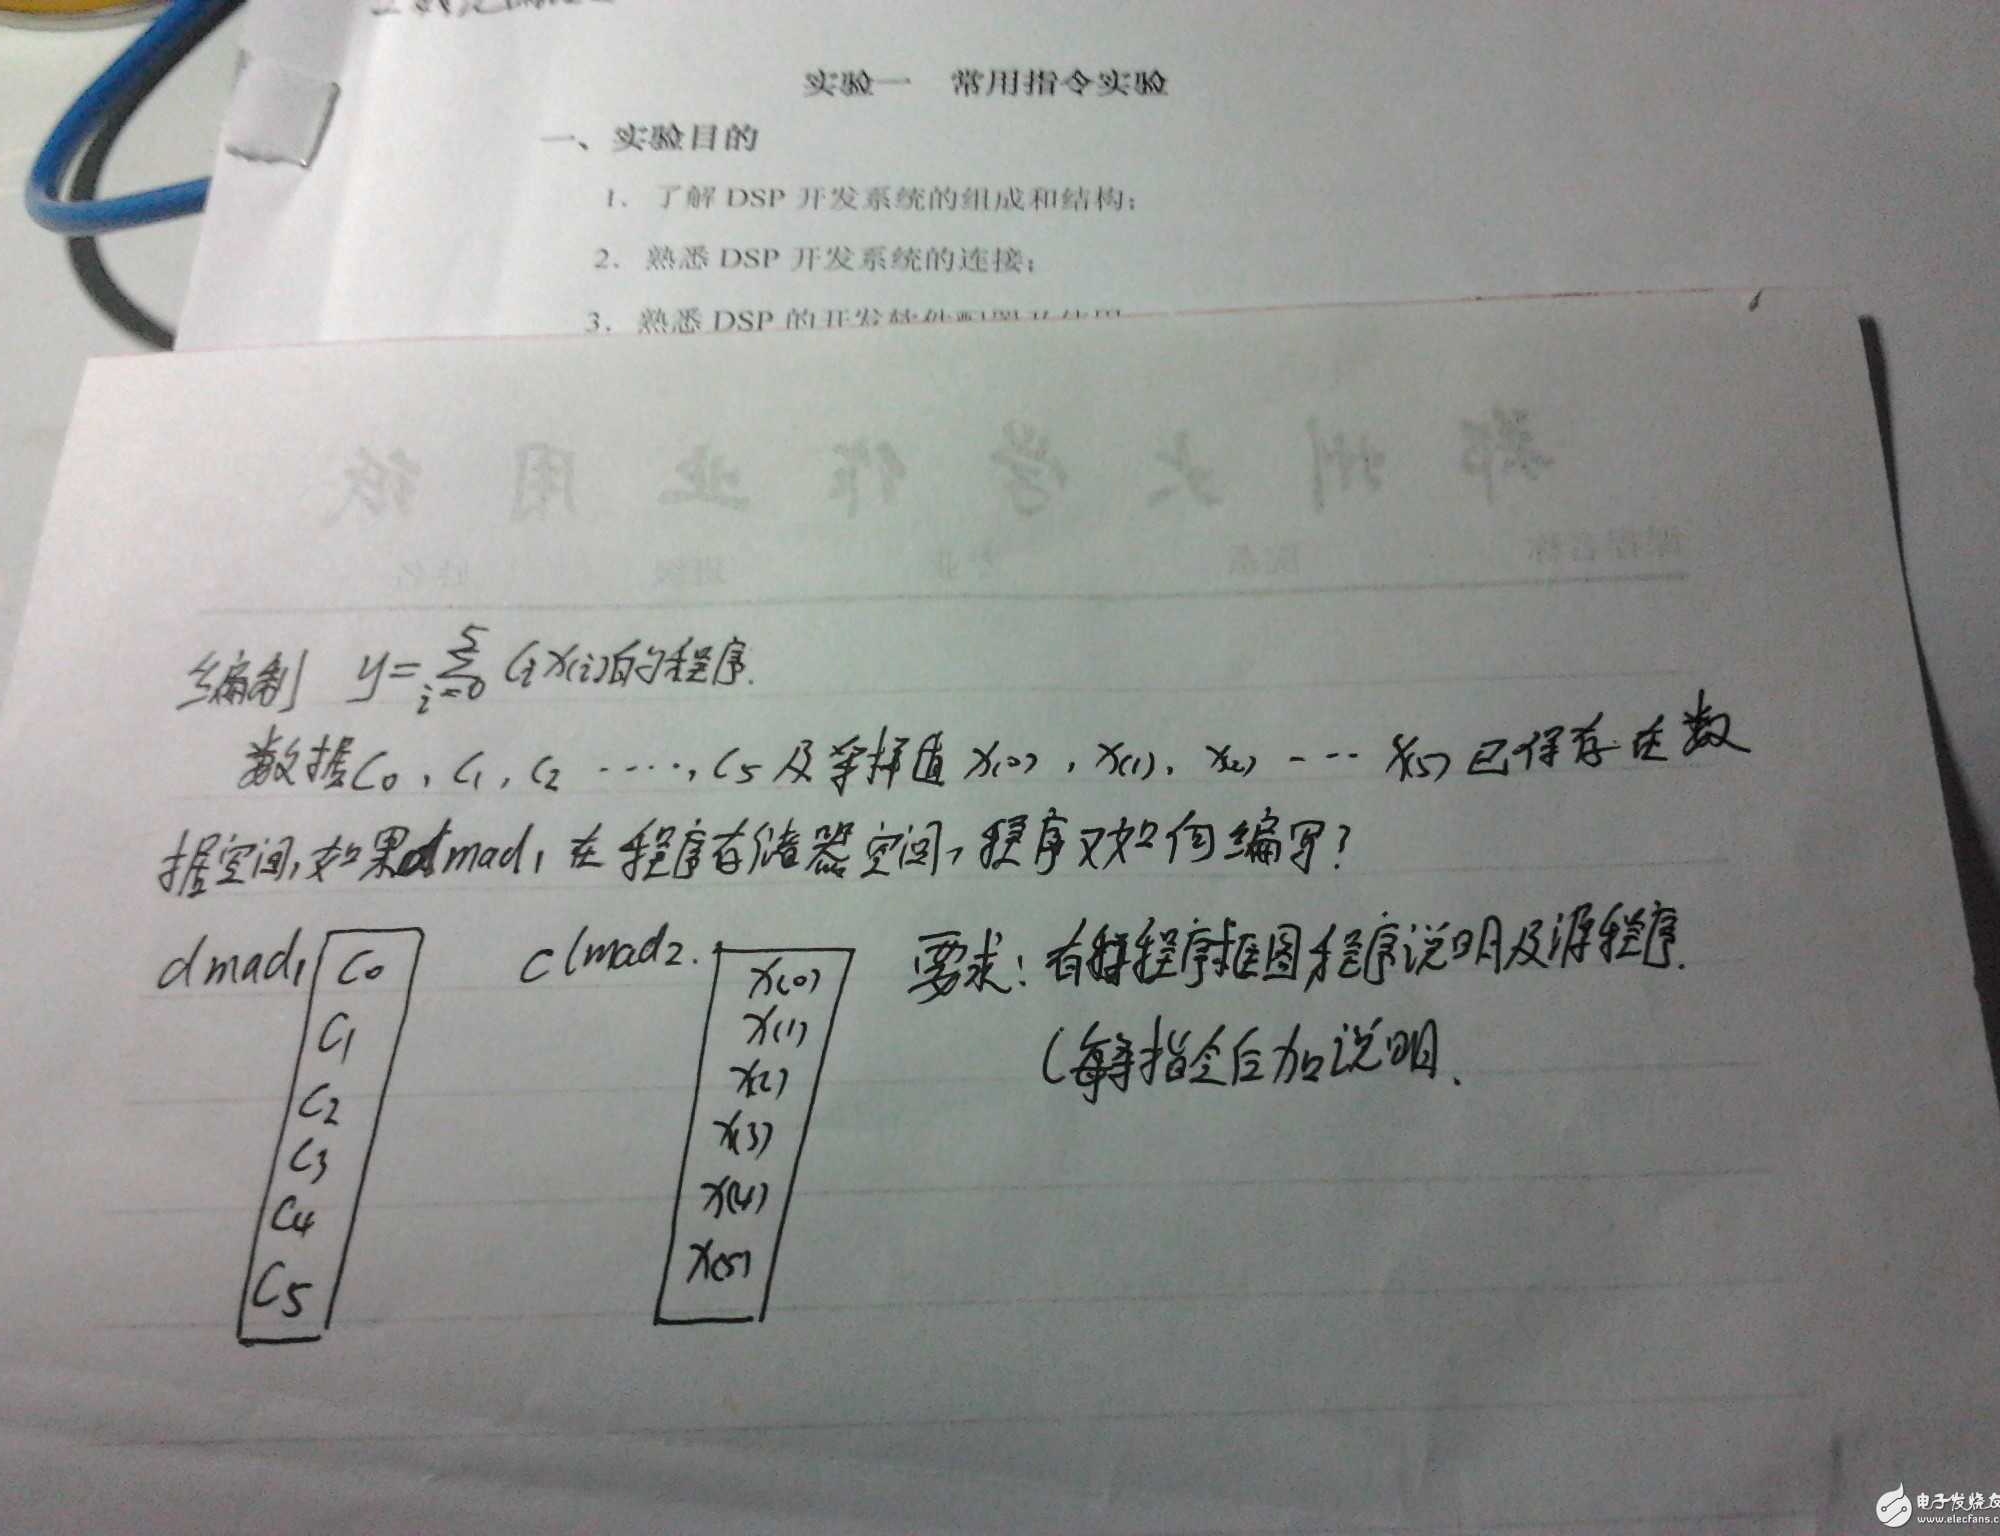 实验一 常用指令实验
一、实验目的
1. 了解 DSP 开发系统的组成和结构;
2. 熟悉 DSP 开发系统的连接;
3. 熟悉 DSP 的开发软件
郑州大学作业用纸
课程名称 院系 专业 班级 姓名
编制 y=∑_{i=0}^{5} Cᵢx(i)的程序.
数据C₀, C₁, C₂ ....., C₅及采样值 x(0), x(1), x(2) --- x(5) 已保存在数
据空间,如果dmad₁在程序存储器空间,程序又如何编写?
dmad₁ C₀ C₁ C₂ C₃ C₄ C₅
dmad₂. x(0) x(1) x(2) x(3) x(4) x(5)
要求: 有程序框图程序说明及源程序.
(每条指令后加说明.
电子发烧友
www.elecfans.com